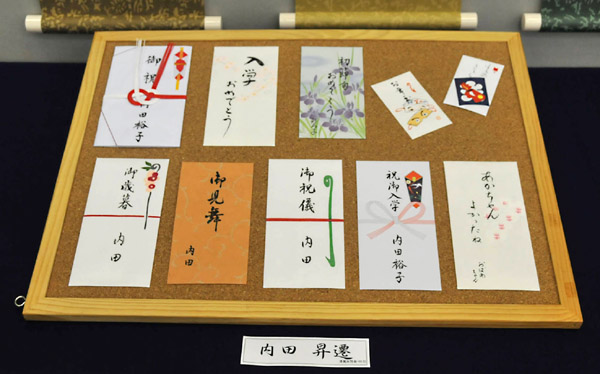 御祝
内田裕子
入学
おめでとう
初節句
おめでとう
御歳暮
内田
御見舞
内田
御祝儀
内田
祝御入学
内田裕子
あかちゃん
よかったね
内田 昇遷